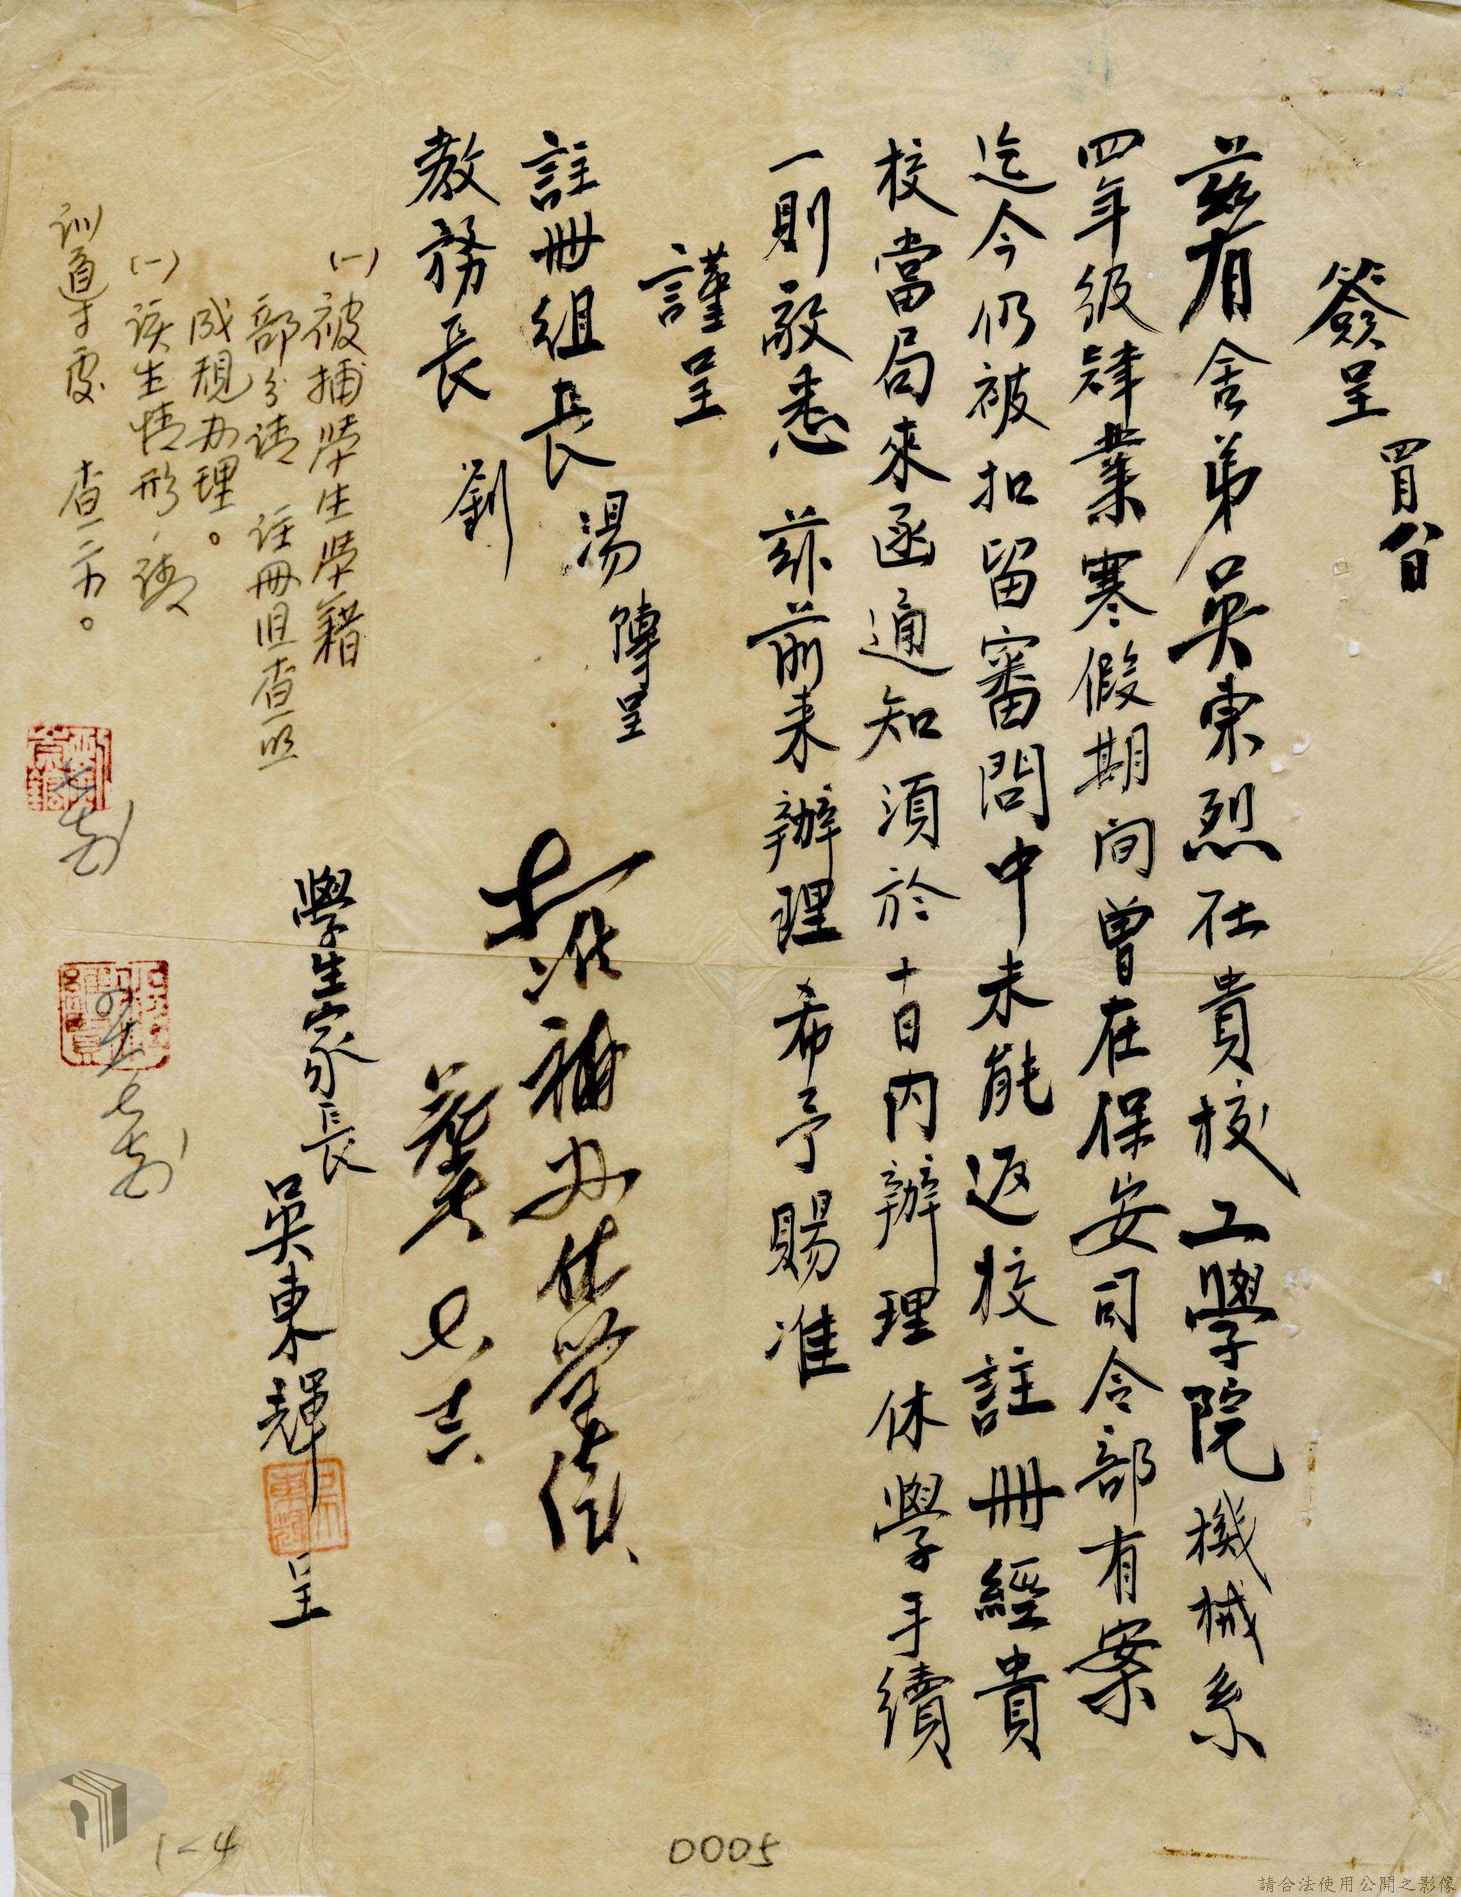 簽呈 四月八日
茲有舍弟吳東烈在貴校工學院機械系
四年級肄業寒假期间曾在保安司令部有案
迄今仍被扣留審問中未能返校註冊經貴
校當局來函通知須於十日內辦理休學手續
一則敬悉 茲前来辦理希予賜准
謹呈
註冊組長 湯 轉呈
教務長 劉
擬准補办休學
學生家長 吳東輝 呈
(一)被捕學生學籍
部分请 註冊組查照
成規办理。
(一)該生情形,请
訓導處 查示。
吳東輝
1-4
0005
請合法使用公開之影像